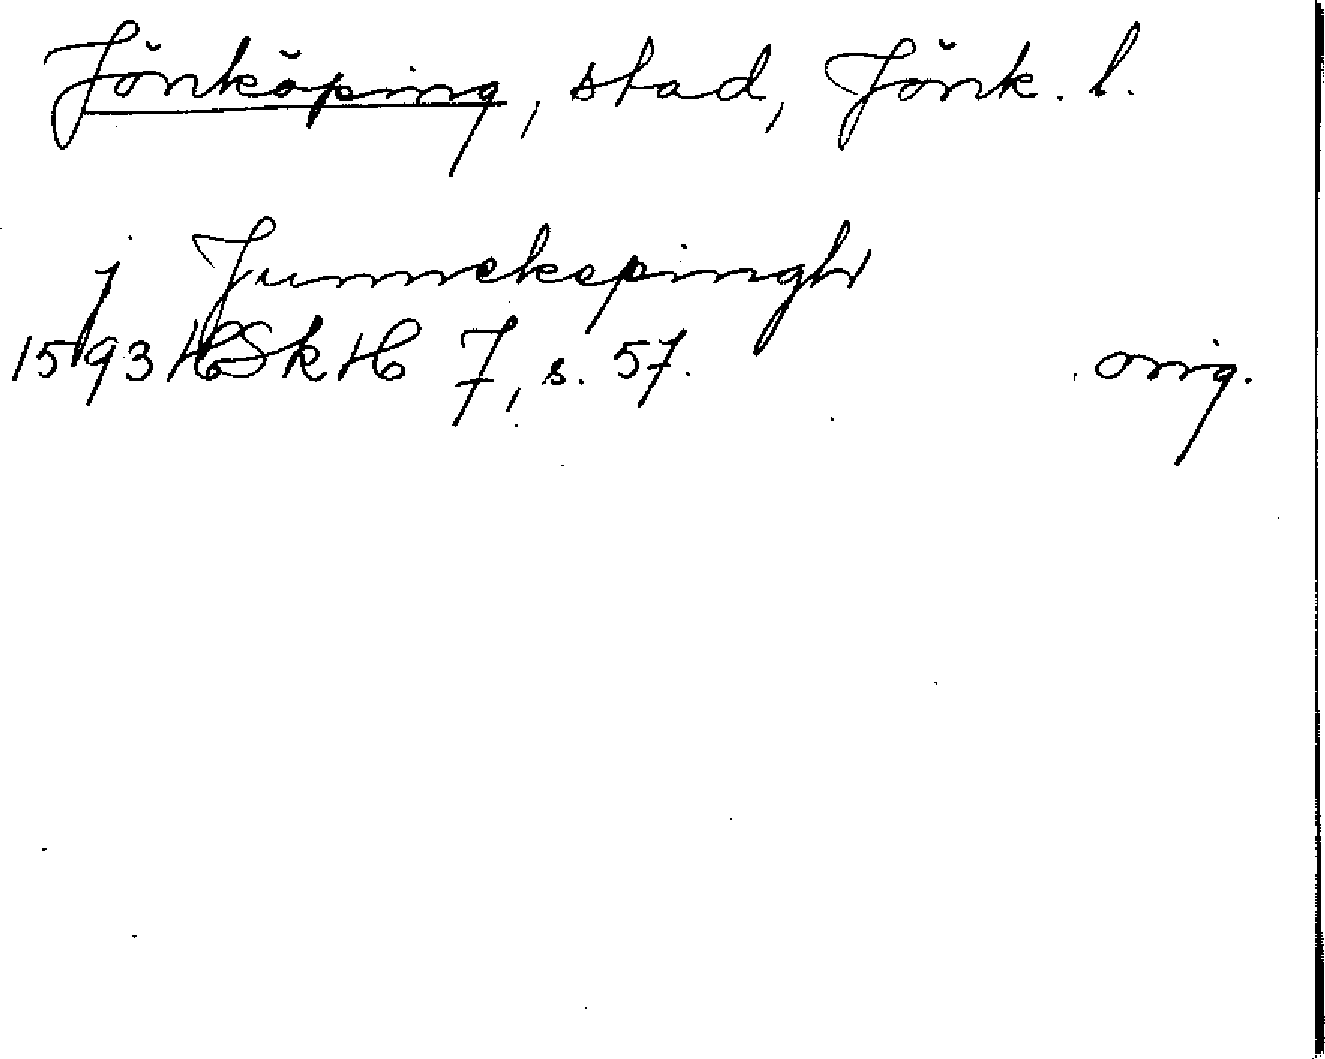 Jönköping, stad, Jönk. l.
j Junnekepingh
1593 HSkH 7, s. 57. orig.